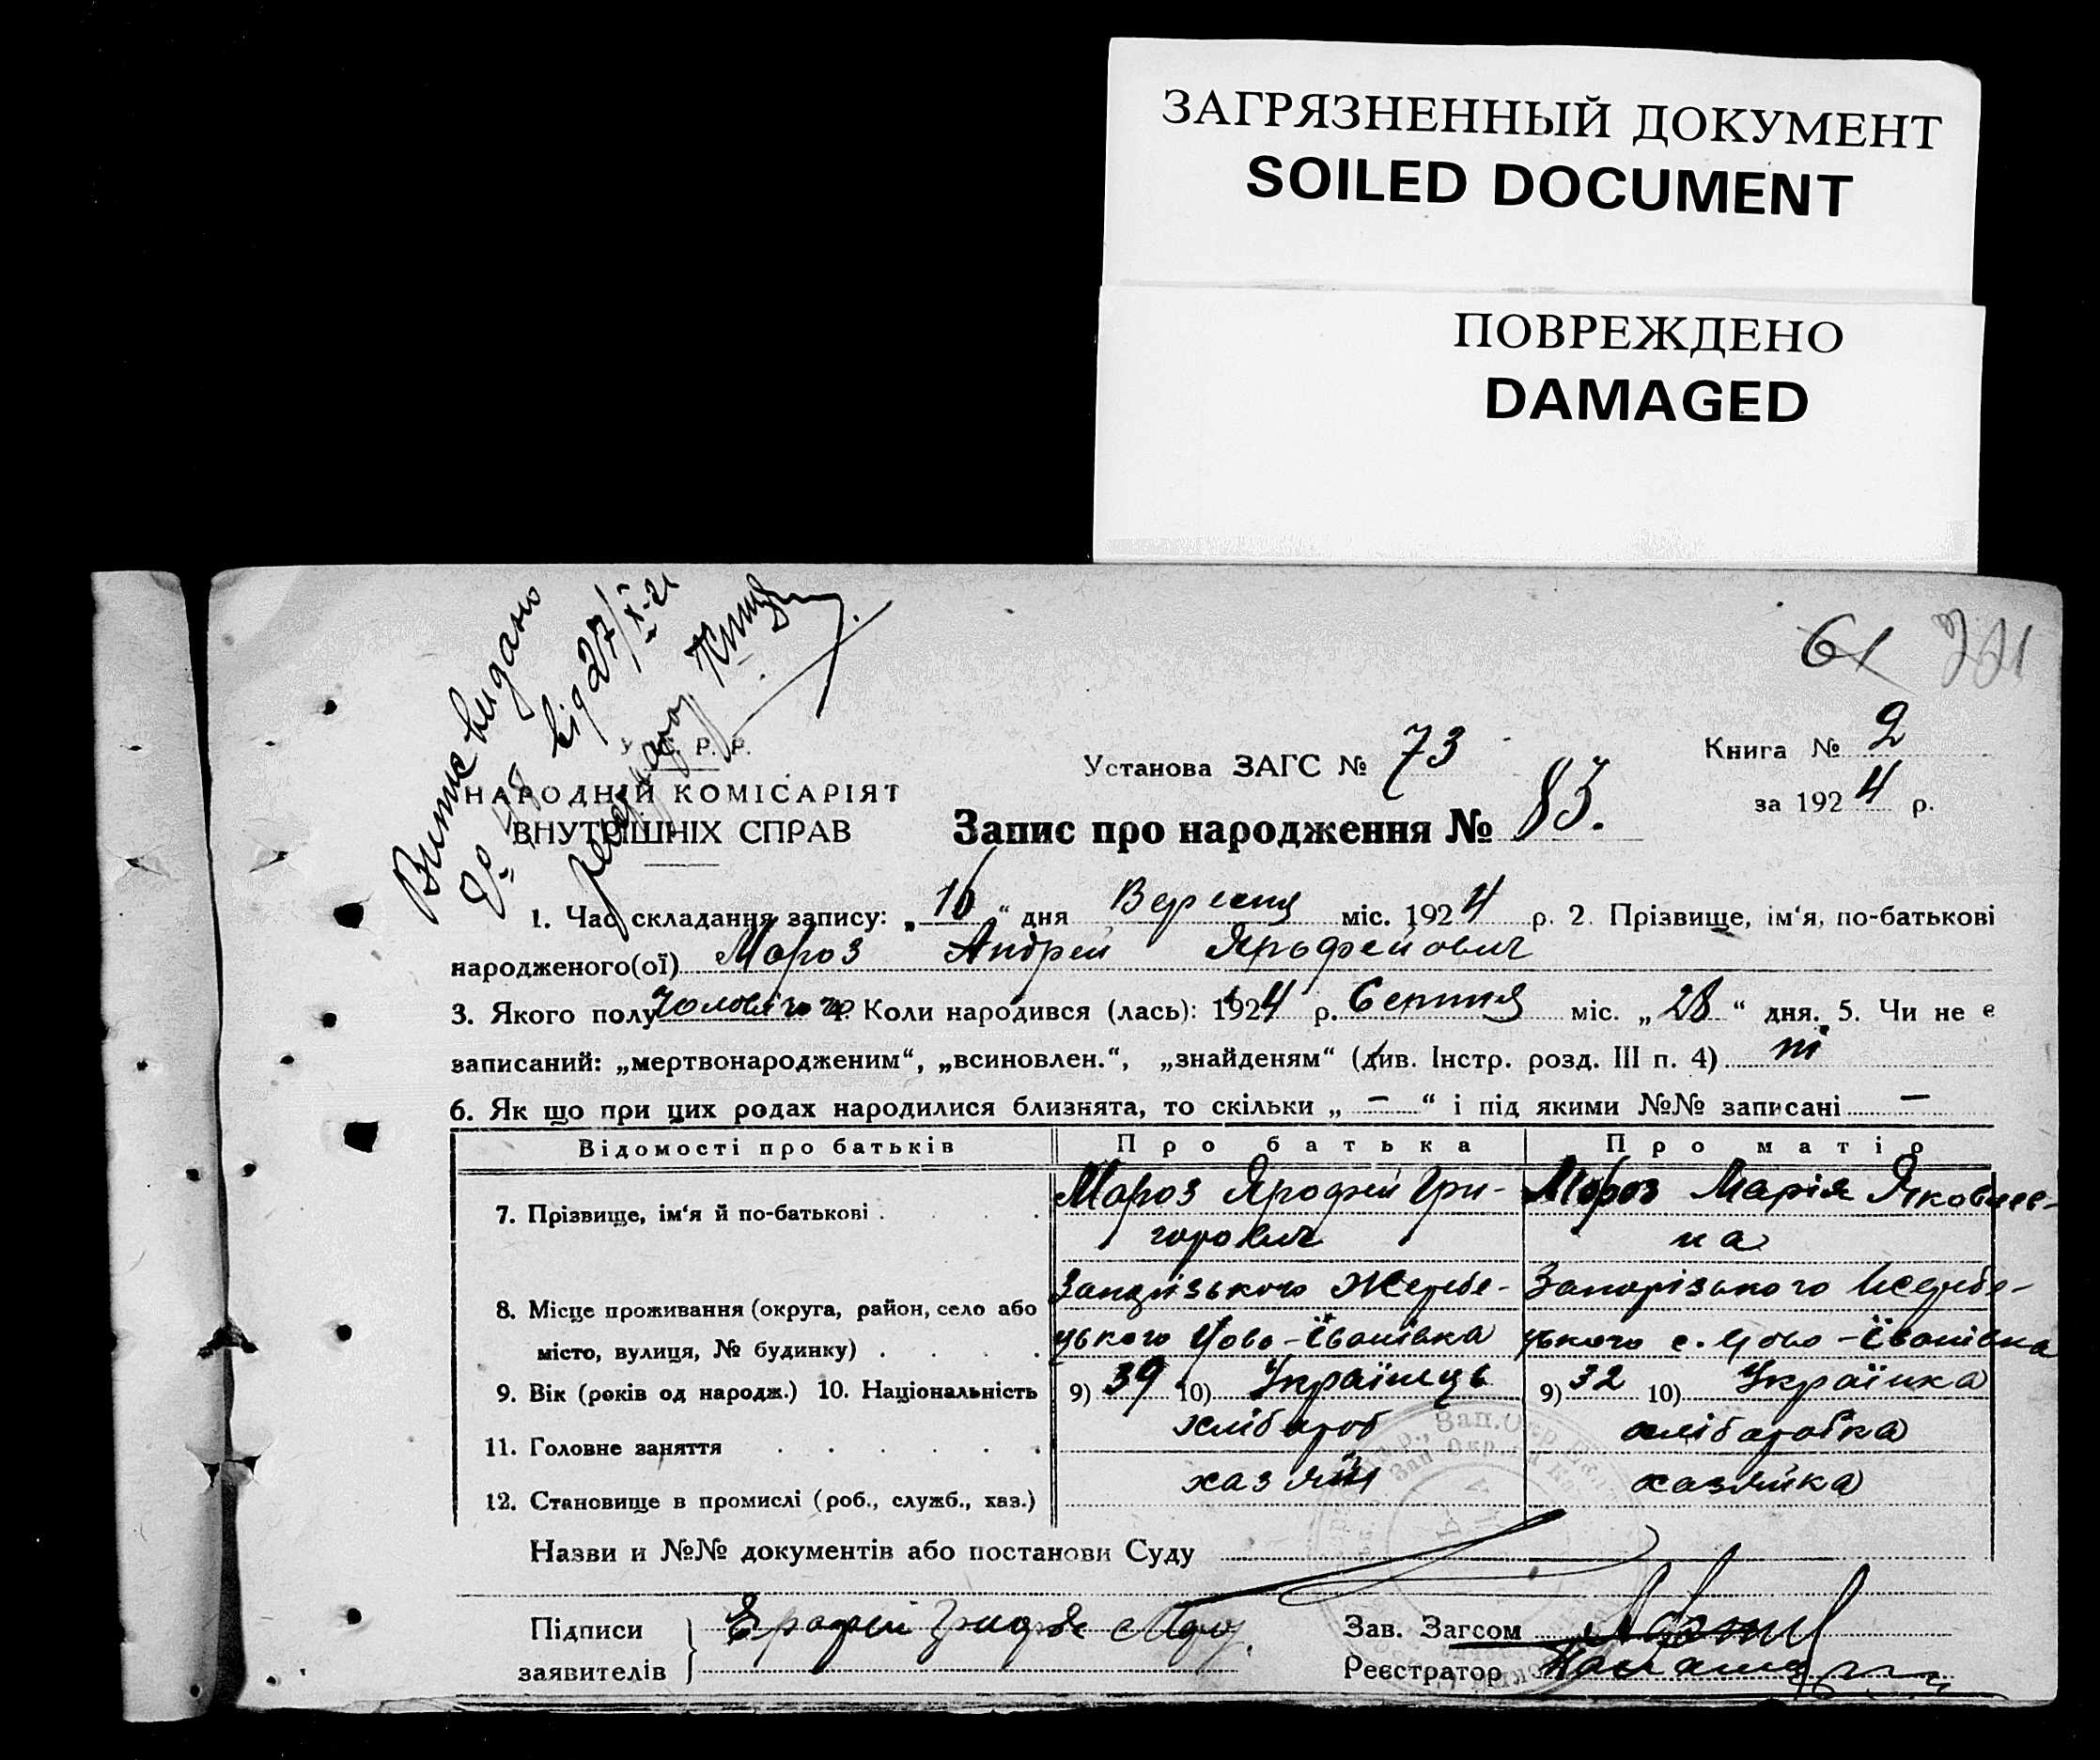 ЗАГРЯЗНЕННЫЙ ДОКУМЕНТ
SOILED DOCUMENT
ПОВРЕЖДЕНО
DAMAGED
61
Витис видано
від 27/X-2
У. С. Р. Р.
НАРОДНІЙ КОМІСАРІЯТ
ВНУТРІШНІХ СПРАВ
Установа ЗАГС № 73
Книга № 2
за 1924 р.
Запис про народження № 83.
1. Час складання запису: „16“ дня Вересня міс. 1924 р. 2. Прізвище, ім‘я, по-батькові
народженого(ої) Мороз Андрей Ярофейович
3. Якого полу чоловічого 4. Коли народився (лась): 1924 р. Серпня міс. „28“ дня. 5. Чи не є
записаний: „мертвонародженим“, „всиновлен.“, „знайденям“ (див. Інстр. розд. III п. 4) ні
6. Як що при цих родах народилися близнята, то скільки „ – “ і під якими №№ записані –
Відомості про батьків Про батька Про матір
7. Прізвище, ім‘я й по-батькові . Мороз Ярофей Гри- Мороз Марія Яковлев-
горович на
8. Місце проживання (округа, район, село або Запорізького Жеребе- Запорізького Жеребе-
місто, вулиця, № будинку) . цького Ново-Іванівка цького с. Ново-Іванівка
9. Вік (років од народж.) 10. Національність 9) 39 10) Українець 9) 32 10) Українка
11. Головне заняття хлібороб хліборобка
12. Становище в промислі (роб., служб., хаз.) хазяїн хазяйка
Назви и №№ документів або постанови Суду
Підписи Ерофей Мороз Зав. Загсом
заявителів Реєстратор